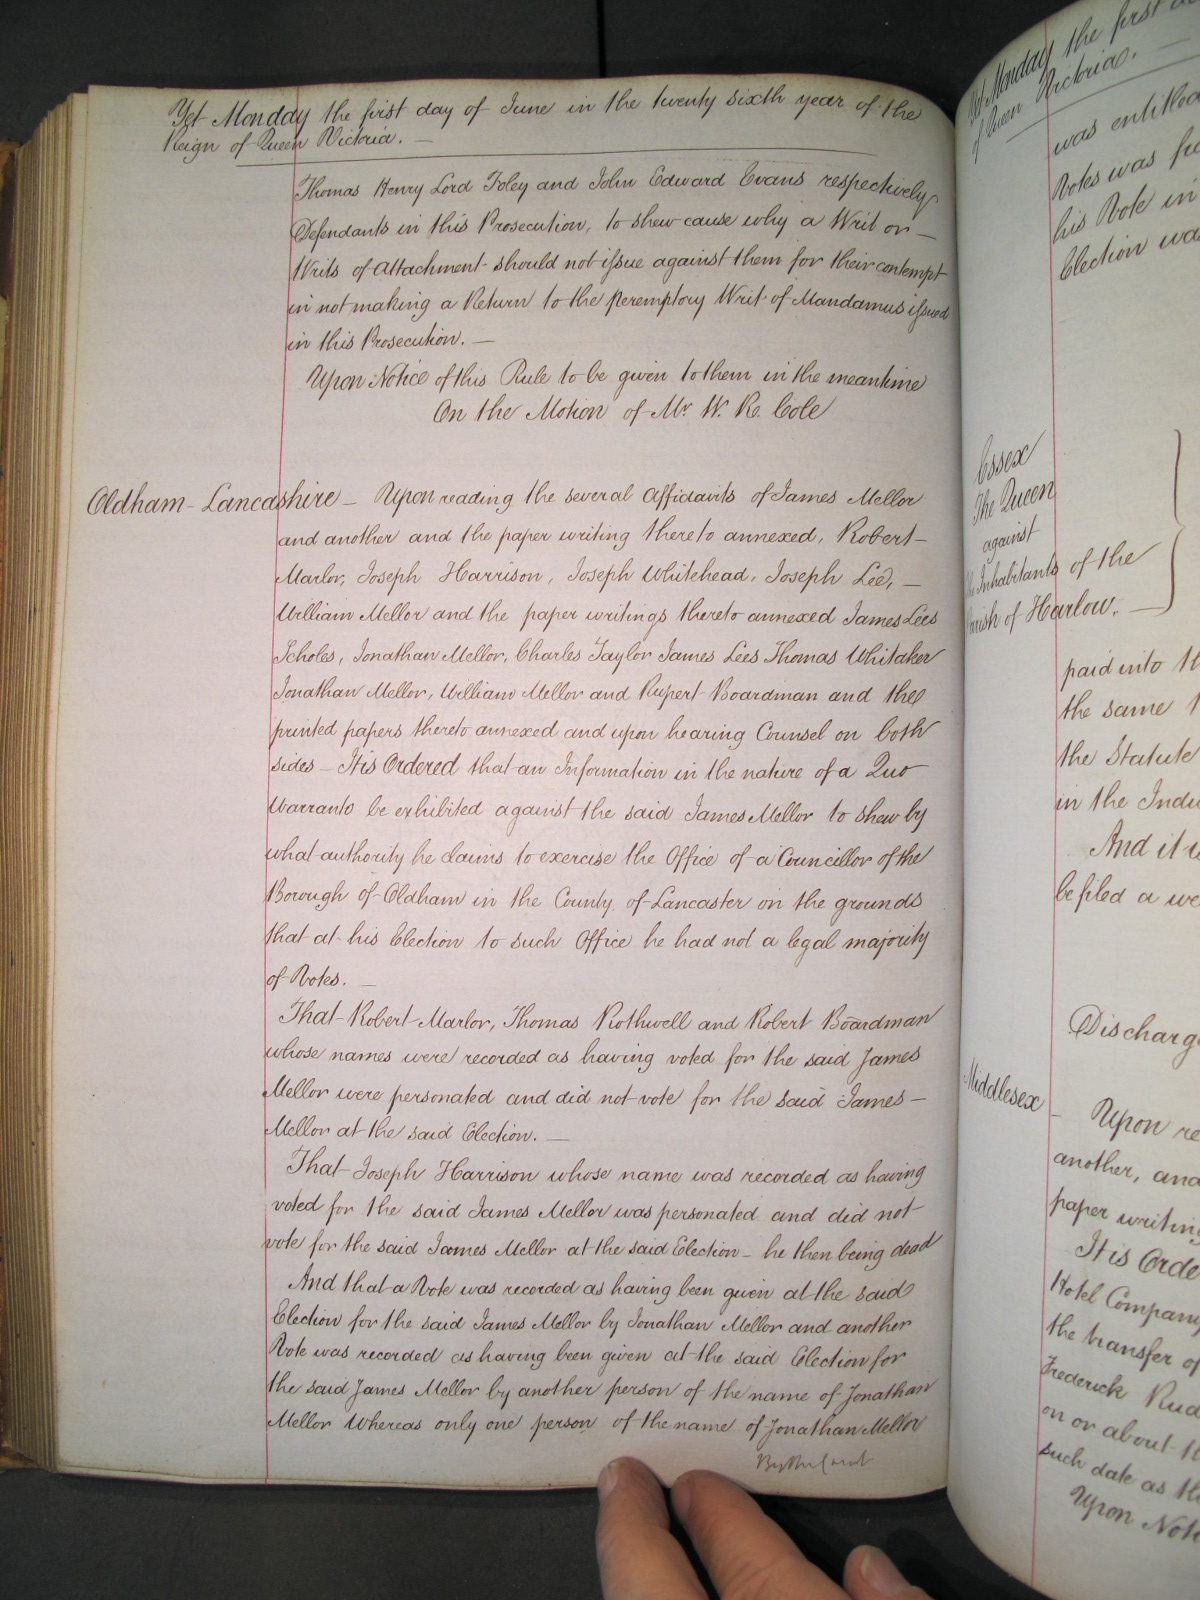 Yet Monday the first day of June in the twenty sixth year of the
Reign of Queen Victoria. —
Thomas Henry Lord Foley and John Edward Evans respectively
Defendants in this Prosecution, to shew cause why a Writ or —
Writs of Attachment should not issue against them for their contempt
in not making a Return to the peremptory Writ of Mandamus issued
in this Prosecution. —
Upon Notice of this Rule to be given to them in the meantime
On the Motion of Mr. W. R. Cole
Oldham - Lancashire — Upon reading the several Affidavits of James Mellor
and another and the paper writing thereto annexed, Robert —
Marlor, Joseph Harrison, Joseph Whitehead, Joseph Lee, —
William Mellor and the paper writings thereto annexed James Lees
Scholes, Jonathan Mellor, Charles Taylor James Lees Thomas Whitaker
Jonathan Mellor, William Mellor and Rupert Boardman and the
printed papers thereto annexed and upon hearing Counsel on both
sides — It is Ordered that an Information in the nature of a Quo
Warranto be exhibited against the said James Mellor to shew by
what authority he claims to exercise the Office of a Councillor of the
Borough of Oldham in the County of Lancaster on the grounds
that at his Election to such Office he had not a legal majority
of Votes. —
That Robert Marlor, Thomas Rothwell and Robert Boardman
whose names were recorded as having voted for the said James
Mellor were personated and did not vote for the said James —
Mellor at the said Election. —
That Joseph Harrison whose name was recorded as having
voted for the said James Mellor was personated and did not
vote for the said James Mellor at the said Election — he then being dead
And that a Vote was recorded as having been given at the said
Election for the said James Mellor by Jonathan Mellor and another
Vote was recorded as having been given at the said Election for
the said James Mellor by another person of the name of Jonathan
Mellor Whereas only one person of the name of Jonathan Mellor
By the Court
Yet Monday the first
of Queen Victoria. —
was entitled
Votes was
his Vote in
Election was
Essex
The Queen
against
the Inhabitants of the
Parish of Harlow. —
paid into
the same
the Statute
in the
And it
be filed a
Discharg
Middlesex —
Upon
another, and
paper writing
It is Orde
Hotel Company
the transfer of
Frederick
on or about
such date as
Upon Not